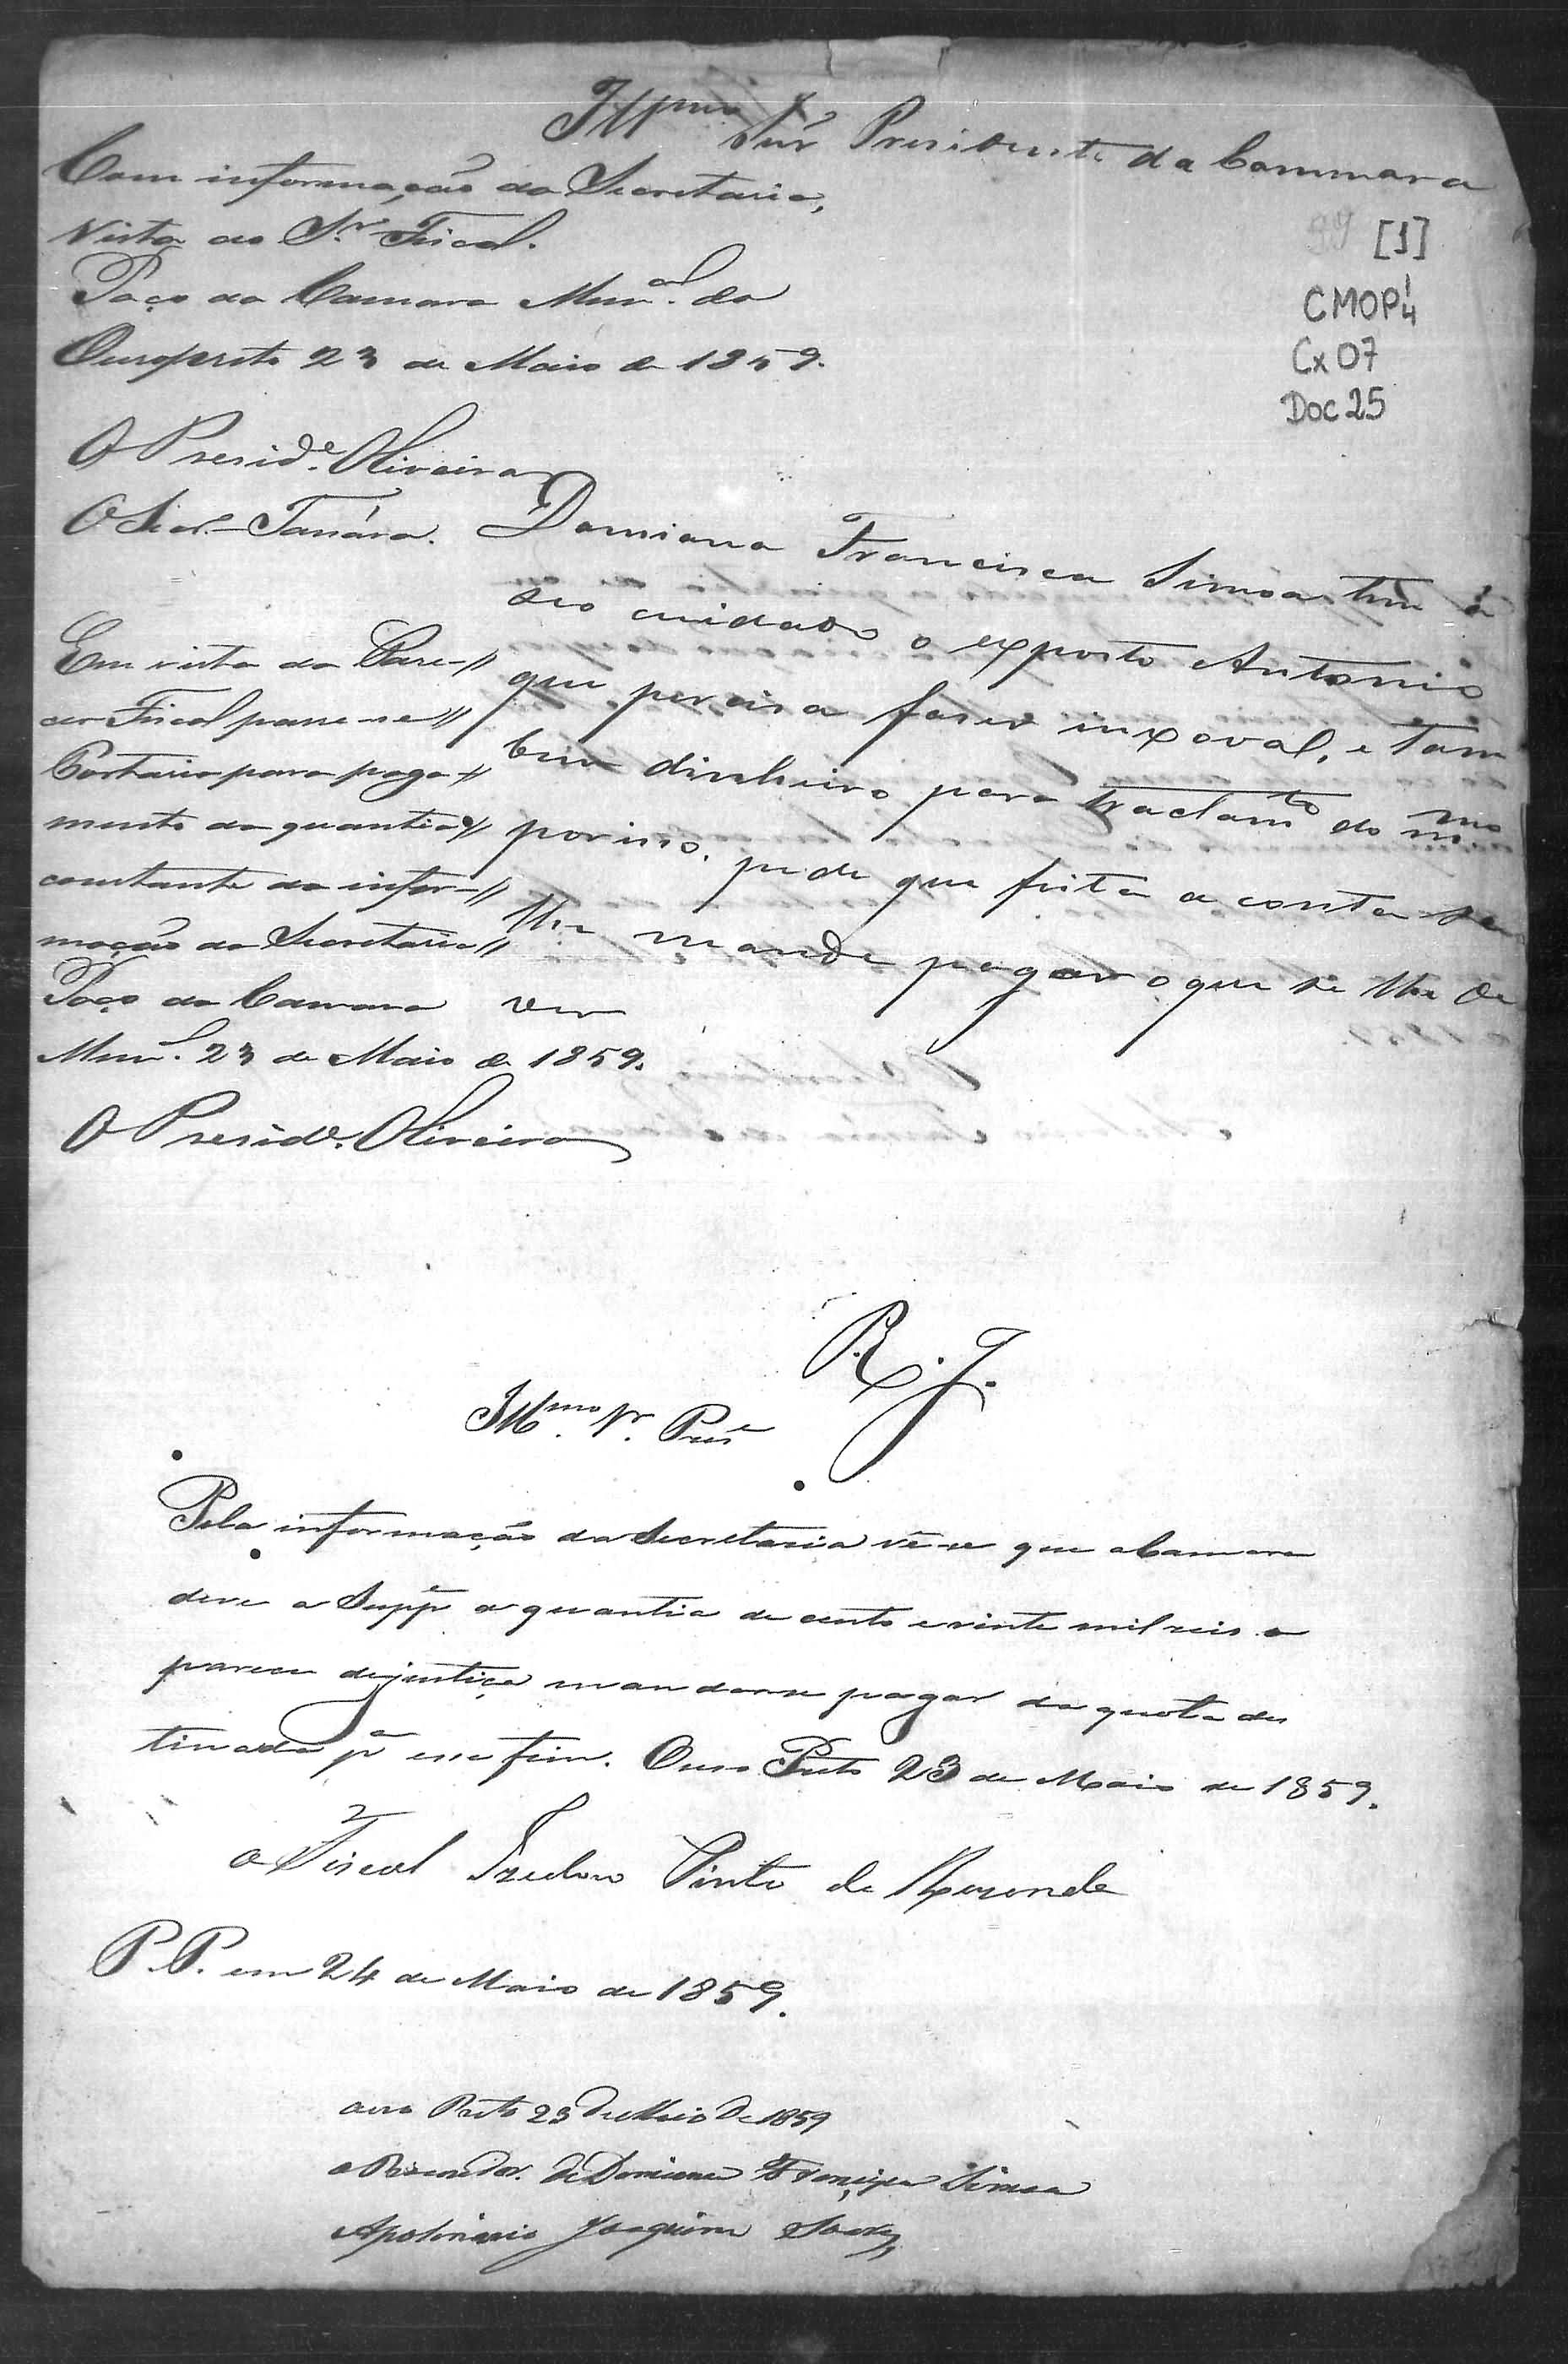 Illmo Snr Presidente da Cammara
Com informação da Secretaria,
Vista ao Sr. Fiscal.
Paço da Camara Munal. do
Ouropreto 23 de Maio de 1859.
O Preside. Oliveira
[1]
CMOP 1/4
Cx 07
Doc 25
Damiana Francisca Simoa tem a
seo cuidado o exposto Antonio
que percisa faser inxoval, e tam
bem dinheiro para tractamto do mmo
porisso. pede que feita a conta se
lhe mande pagar o que se lhe de
ver
Em vista do Pare-
cer Fiscal passe-se
Portaria para paga-
mento da quantia
constante da infor-
mação da Secretaria
Paço da Camara
Munl. 23 de Maio de 1859.
O Preside. Oliveira
R. J.
Illmo. Sr. Prese
Pela informação da Secretaria vê-se que a Camara
deve a Suppe a quantia de cento e vinte mil reis e
parece de justiça mandarse pagar da quota des
tinada pa esse fim. Ouro Preto 23 de Maio de 1859.
O Fiscal Pinto de Rezende
P. P. em 24 de Maio de 1859.
ouro Preto 23 de Maio de 1859
de Damiana Francisca Simoa
Apolinario Joaquim